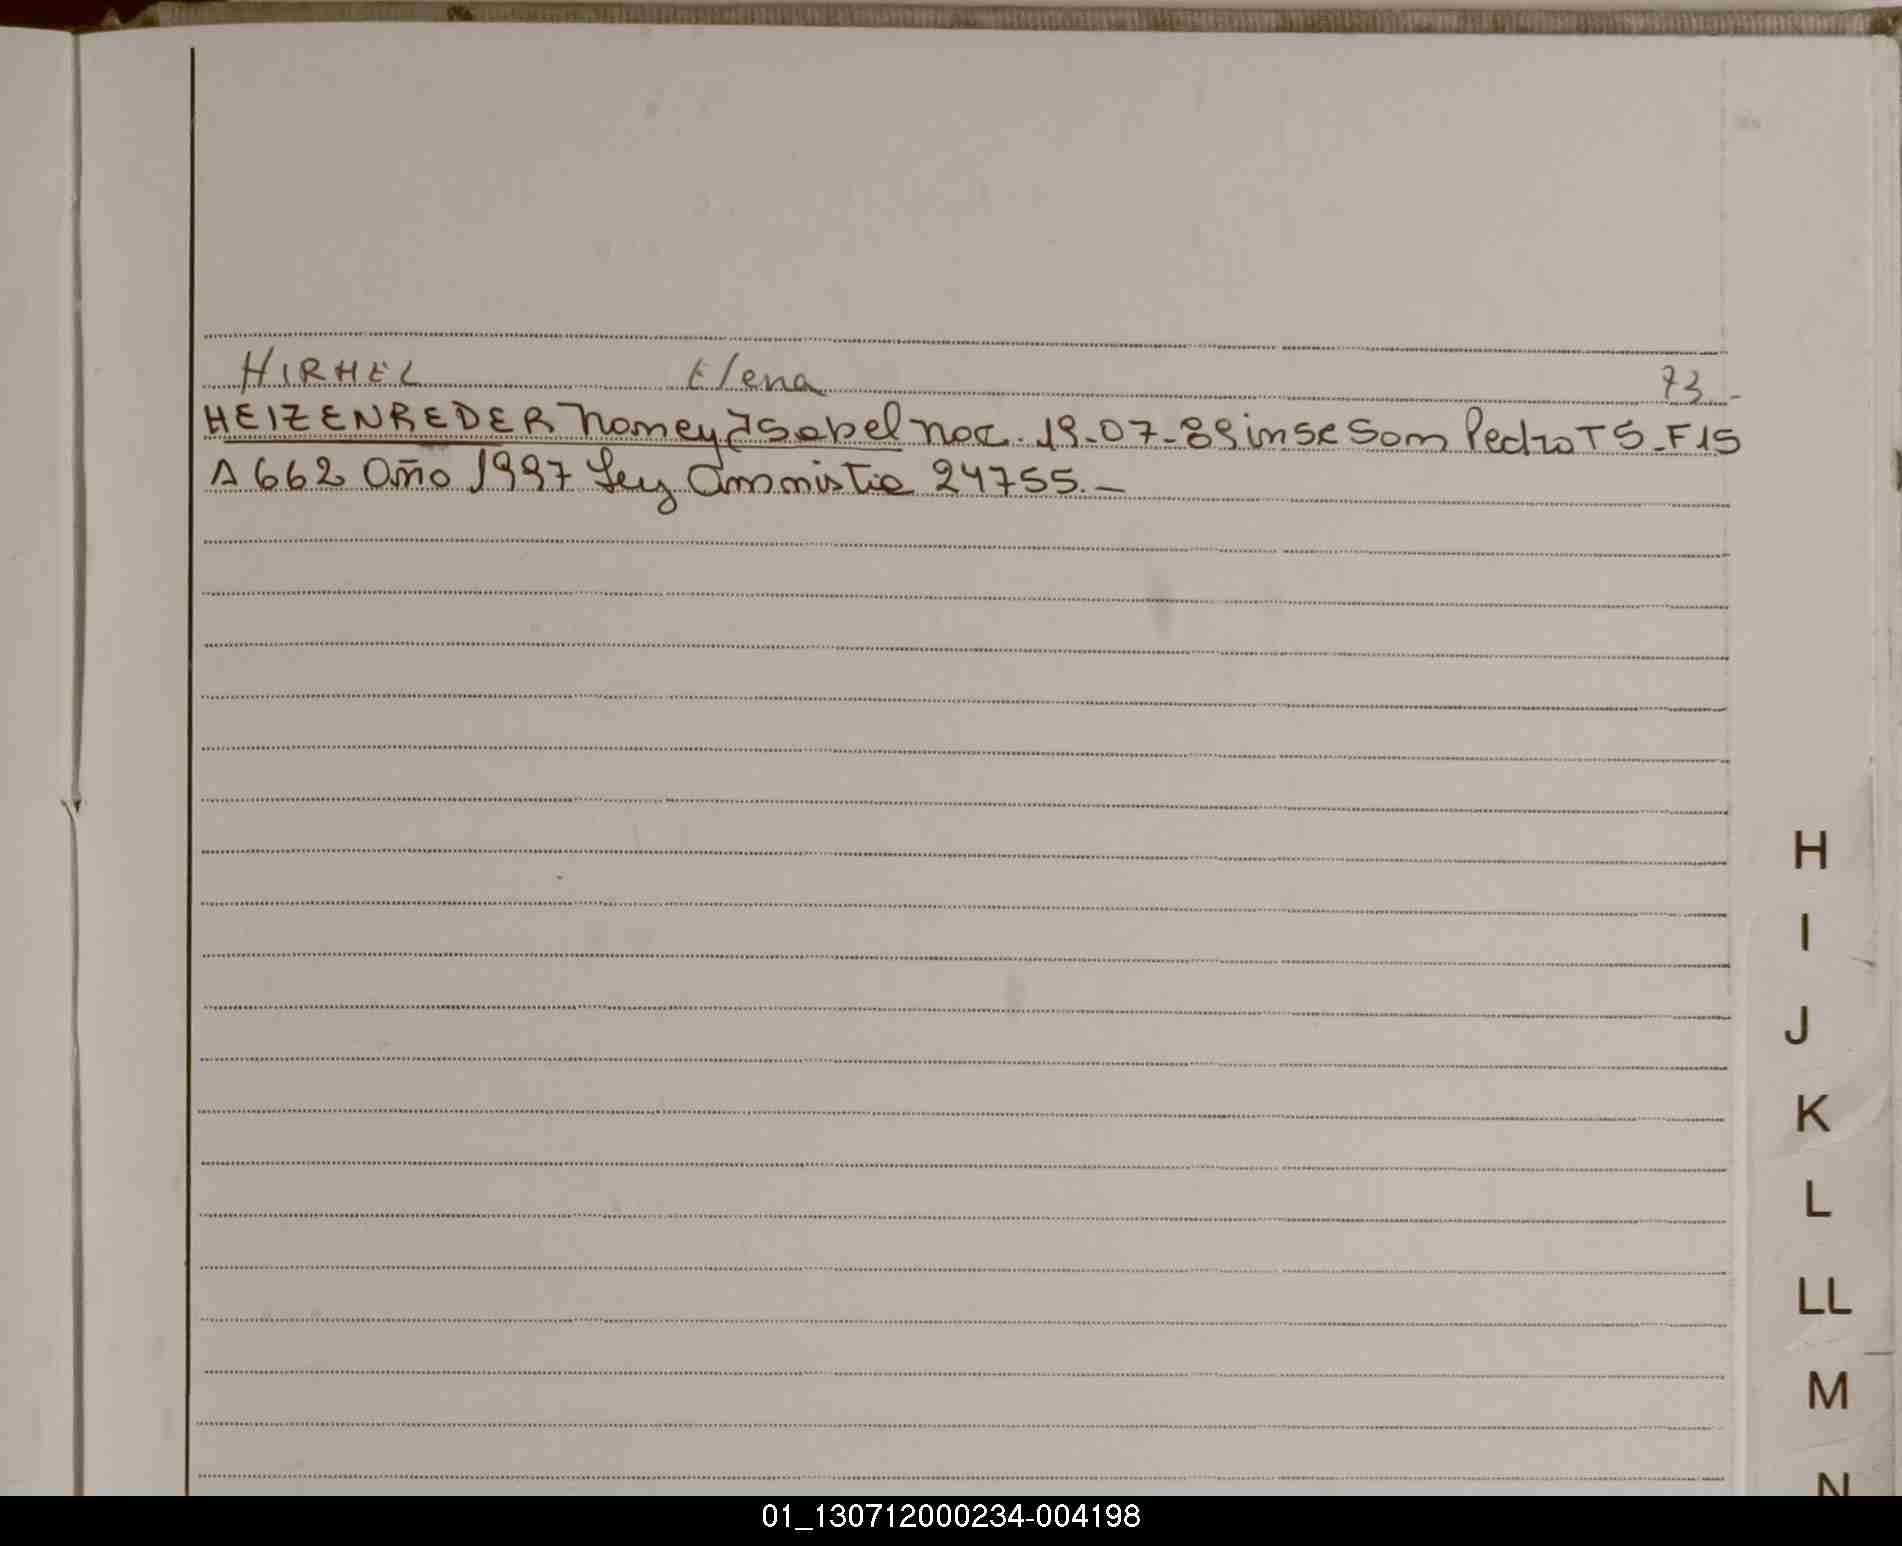 HIRHEL Elena 73-
HEIZENREDER Nancy Isabel nac. 19-07-89 insc San Pedro T 5-F 15
A 662 Año 1997 Ley Amnistia 24755.-
H
I
J
K
L
LL
M
N
01_130712000234-004198